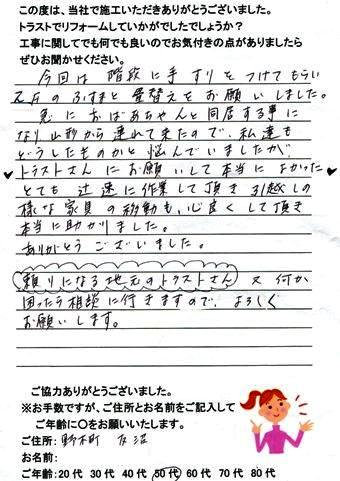 この度は、当社で施工いただきありがとうございました。
トラストでリフォームしていかがでしたでしょうか?
工事に関してでも何でも良いのでお気付きの点がありましたら
ぜひお聞かせください。
今回は 階段に手すりをつけてもらい
2ヶ所のふすまと 畳替えをお願いしました。
急に おばあちゃんと同居する事に
なり山形から連れて来たので、私達も
どうしたものかと悩んでいましたが
トラストさんにお願いして本当によかった
とても 迅速に作業して頂き 引越しの
様な家具の移動も、心良くして頂き
本当に助かりました。
ありがとうございました。
頼りになる地元のトラストさん 又 何か
困ったら相談に行きますので、よろしく
お願いします。
ご協力ありがとうございました。
※お手数ですが、ご住所とお名前をご記入して
ご年齢に○をお願いいたします。
ご住所: 野木町 友沼
お名前:
ご年齢:20代 30代 40代 50代 60代 70代 80代